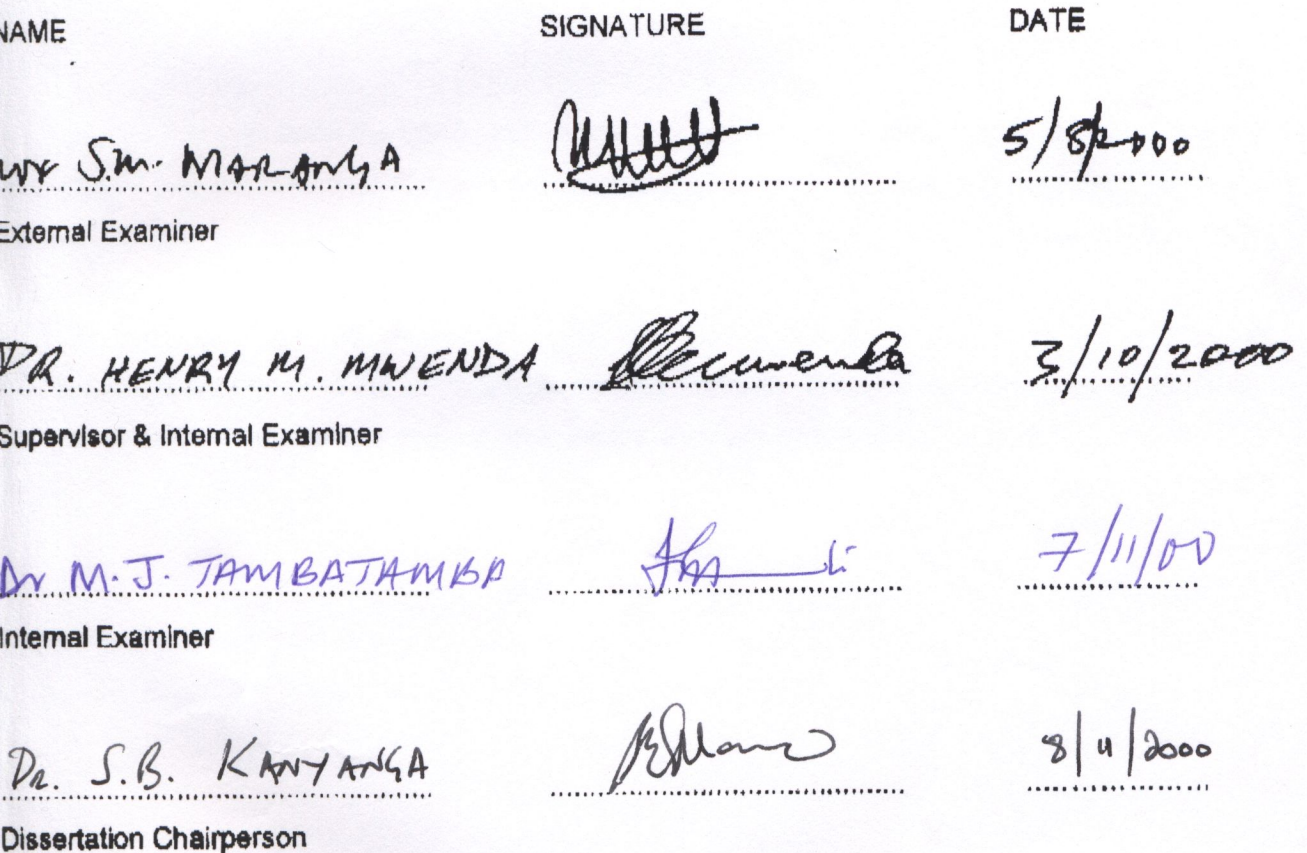 NAME SIGNATURE DATE
S.M. MARANGA 5/8/2000
External Examiner
DR. HENRY M. MWENDA 3/10/2000
Supervisor & Internal Examiner
Dr M.J. TAMBATAMBA 7/11/00
Internal Examiner
DR. S.B. KANYANGA 8/11/2000
Dissertation Chairperson